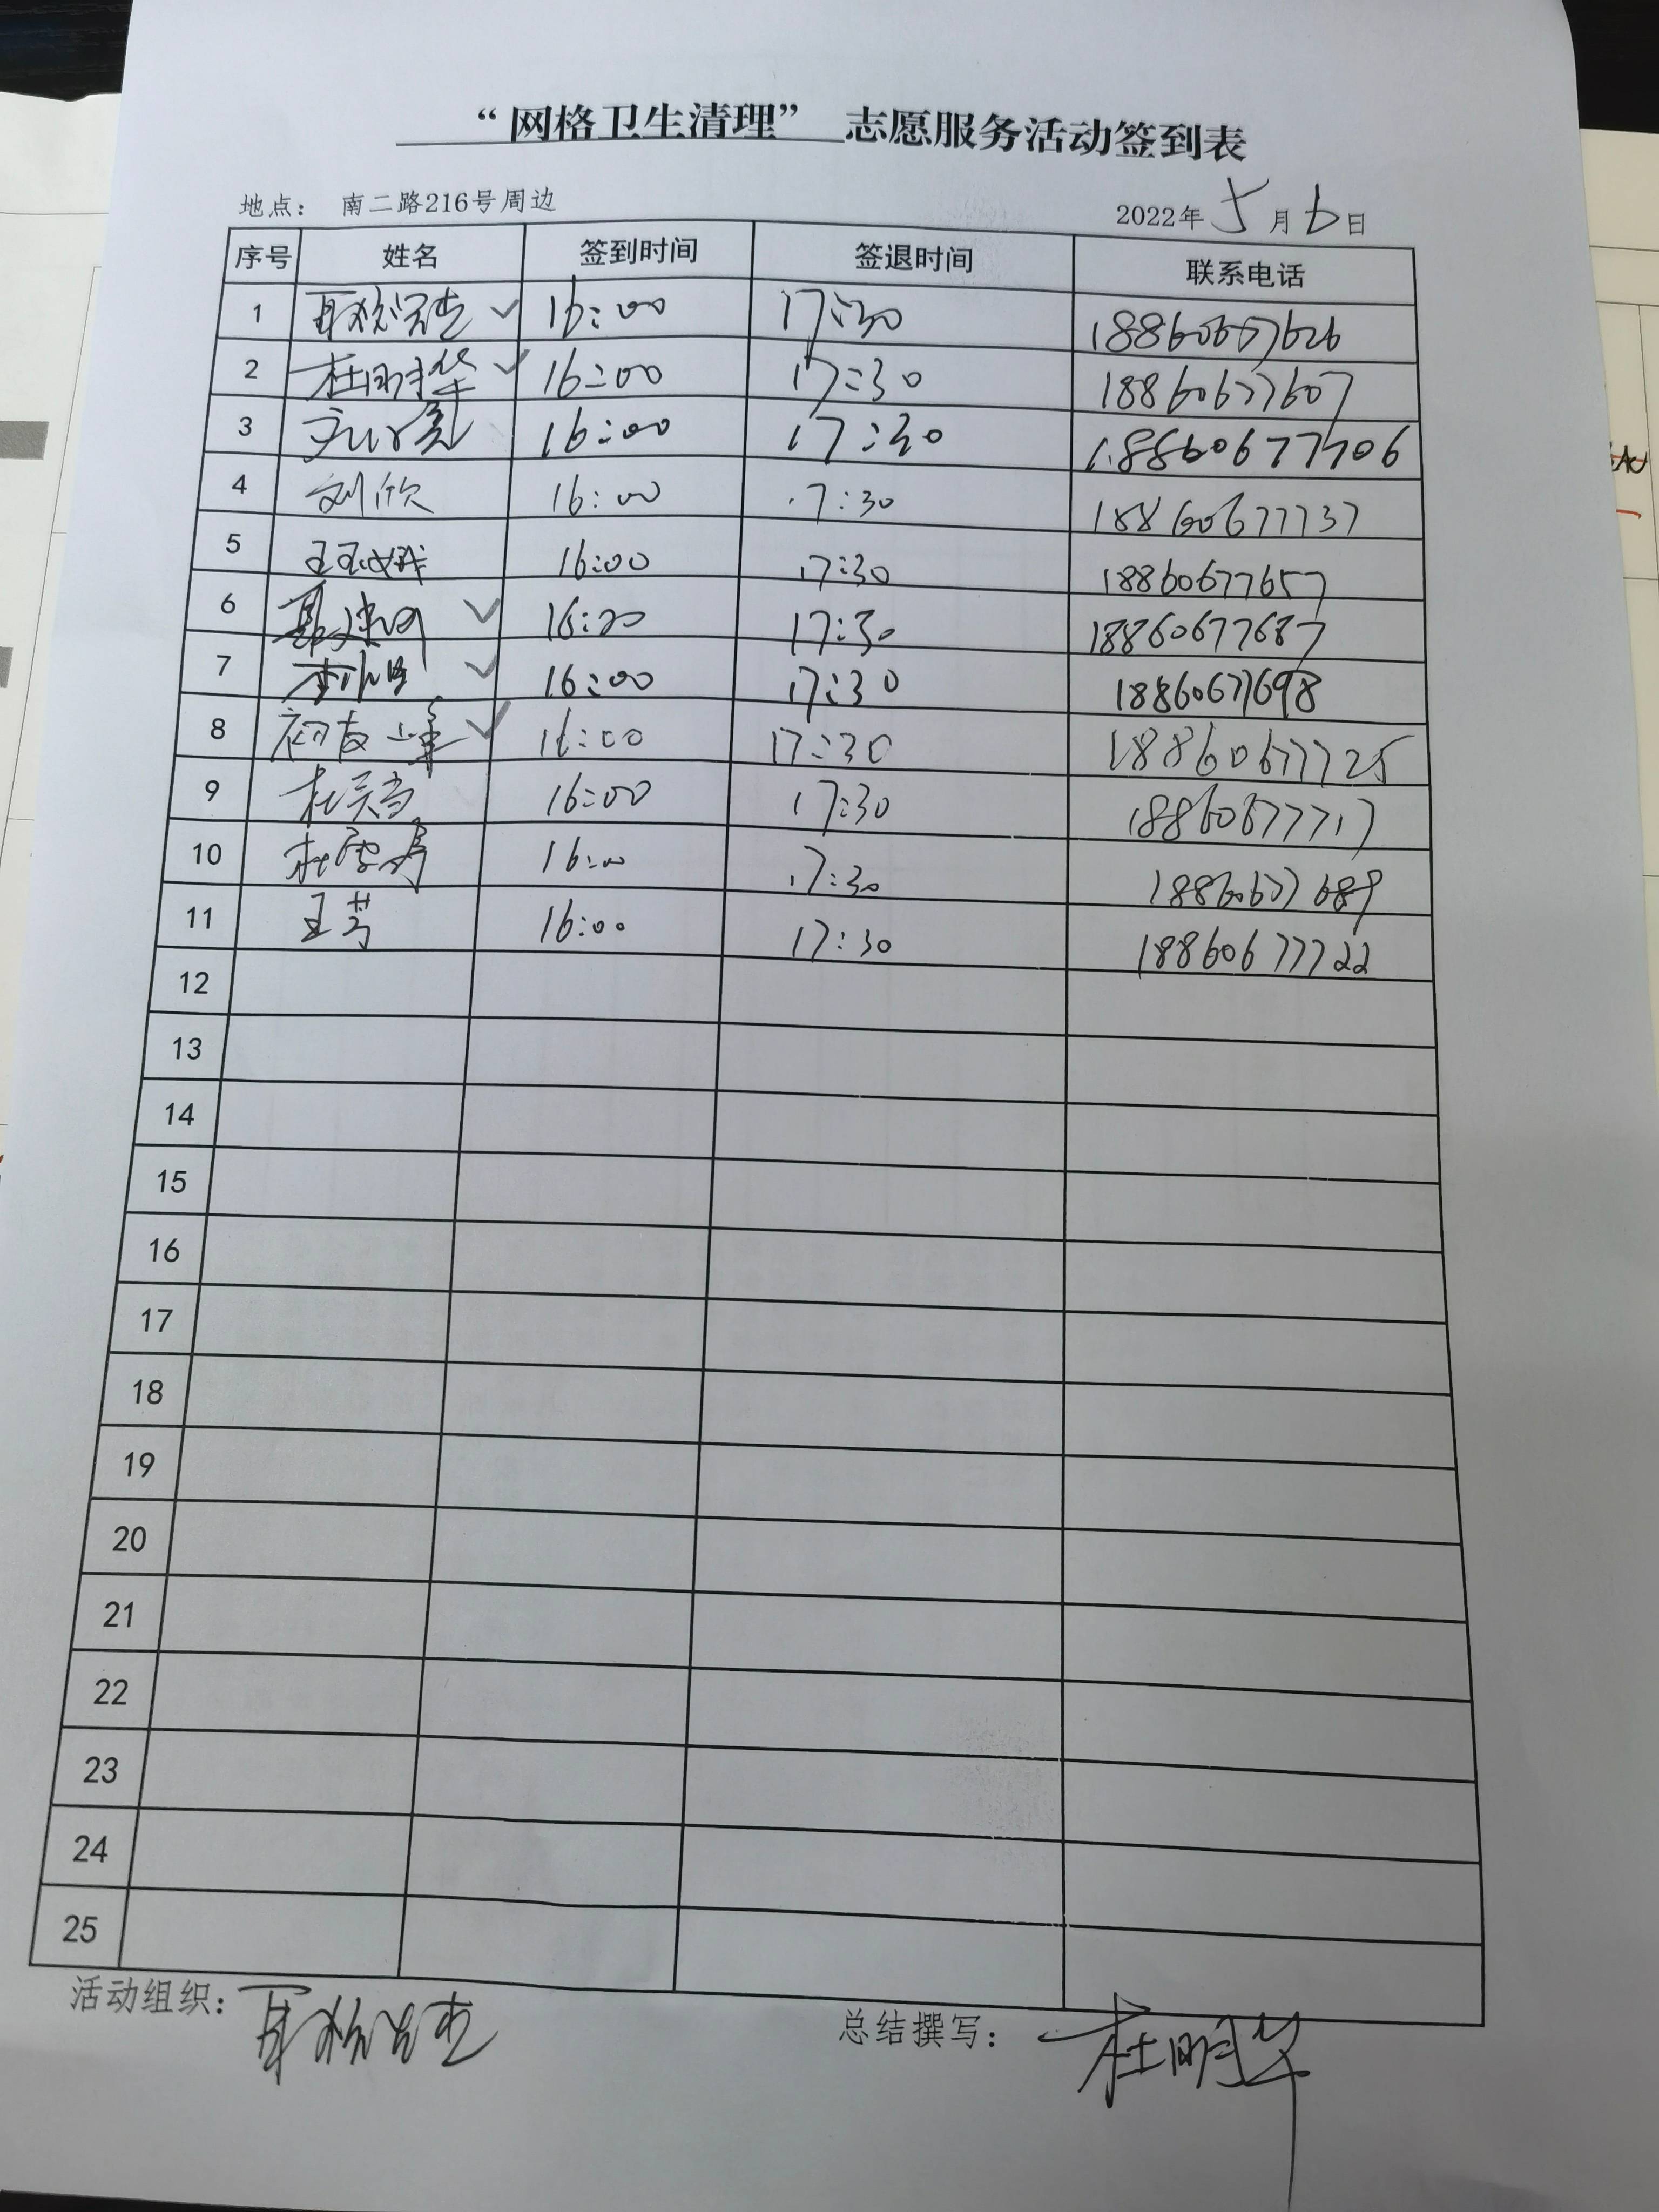 “网格卫生清理” 志愿服务活动签到表
地点： 南二路216号周边 2022年5月6日
序号 姓名 签到时间 签退时间 联系电话
1 16:00 17:30 18860677626
2 杜明华 16:00 17:30 18860677607
3 16:00 17:30 18860677706
4 刘欣 16:00 17:30 18860677737
5 16:00 17:30 18860677657
6 17:30 18860677687
7 16:00 17:30 18860677698
8 16:00 17:30 18860677725
9 16:00 17:30 18860677717
10 16:00 17:30 18860677689
11 王芳 16:00 17:30 18860677722
12
13
14
15
16
17
18
19
20
21
22
23
24
25
活动组织： 总结撰写：杜明华